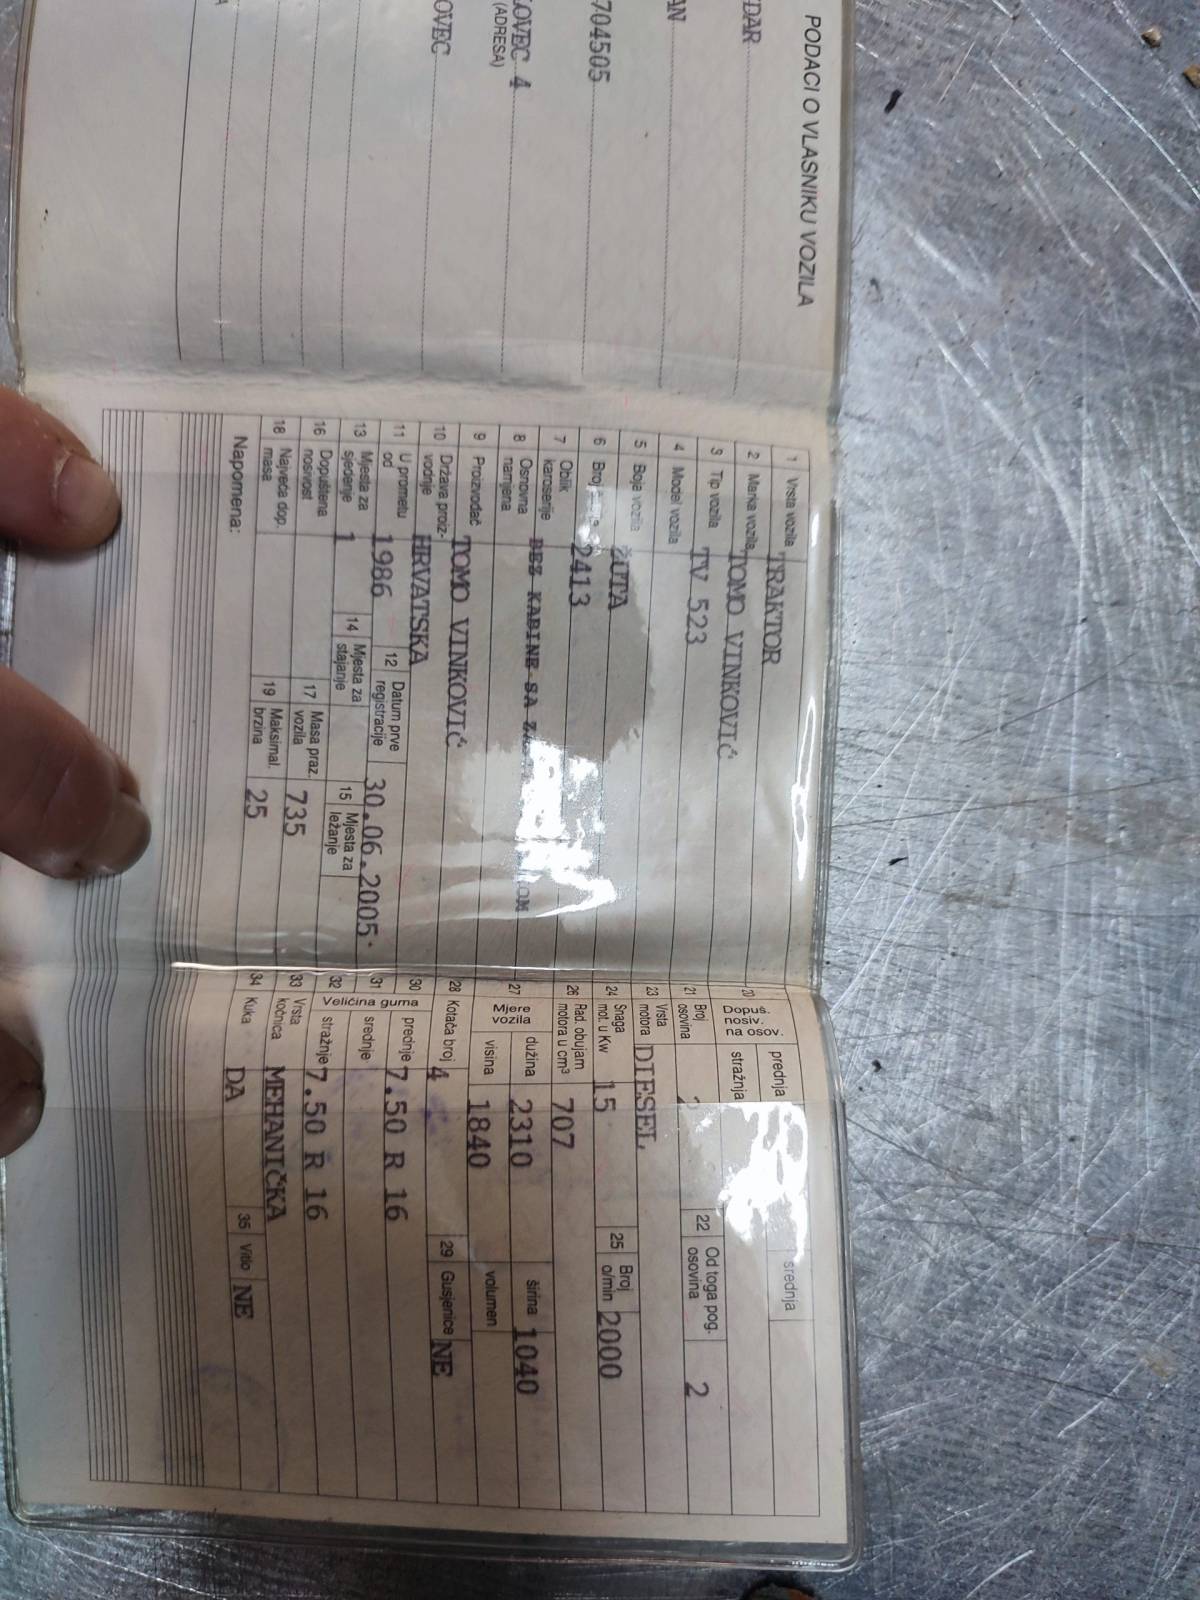 PODACI O VLASNIKU VOZILA
DAR
AN
704505
LOVEC 4
(ADRESA)
OVEC
1 Vrsta vozila TRAKTOR
2 Marka vozila TOMO VINKOVIĆ
3 Tip vozila TV 523
4 Model vozila
5 Boja vozila ŽUTA
6 Broj 2413
7 Oblik karoserije BEZ KABINE SA OM
8 Osnovna namjena
9 Proizvođač TOMO VINKOVIĆ
10 Država proizvodnje HRVATSKA
11 U prometu od 1986 12 Datum prve registracije 30.06.2005.
13 Mjesta za sjedenje 1 14 Mjesta za stajanje 15 Mjesta za ležanje
16 Dopuštena nosivost 17 Masa praz. vozila 735
18 Najveća dop. masa 19 Maksimal. brzina 25
Napomena:
20 Dopuš. nosiv. na osov. prednja srednja
stražnja
21 Broj osovina 2 22 Od toga pog. osovina 2
23 Vrsta motora DIESEL
24 Snaga mot. u Kw 15 25 Broj o/min 2000
26 Rad. obujam motora u cm³ 707
27 Mjere vozila dužina 2310 širina 1040
visina 1840 volumen
28 Kotača broj 4 29 Gusjenice NE
30 Veličina guma prednje 7.50 R 16
31 srednje
32 stražnje 7.50 R 16
33 Vrsta kočnica MEHANIČKA
34 Kuka DA 35 Vitlo NE